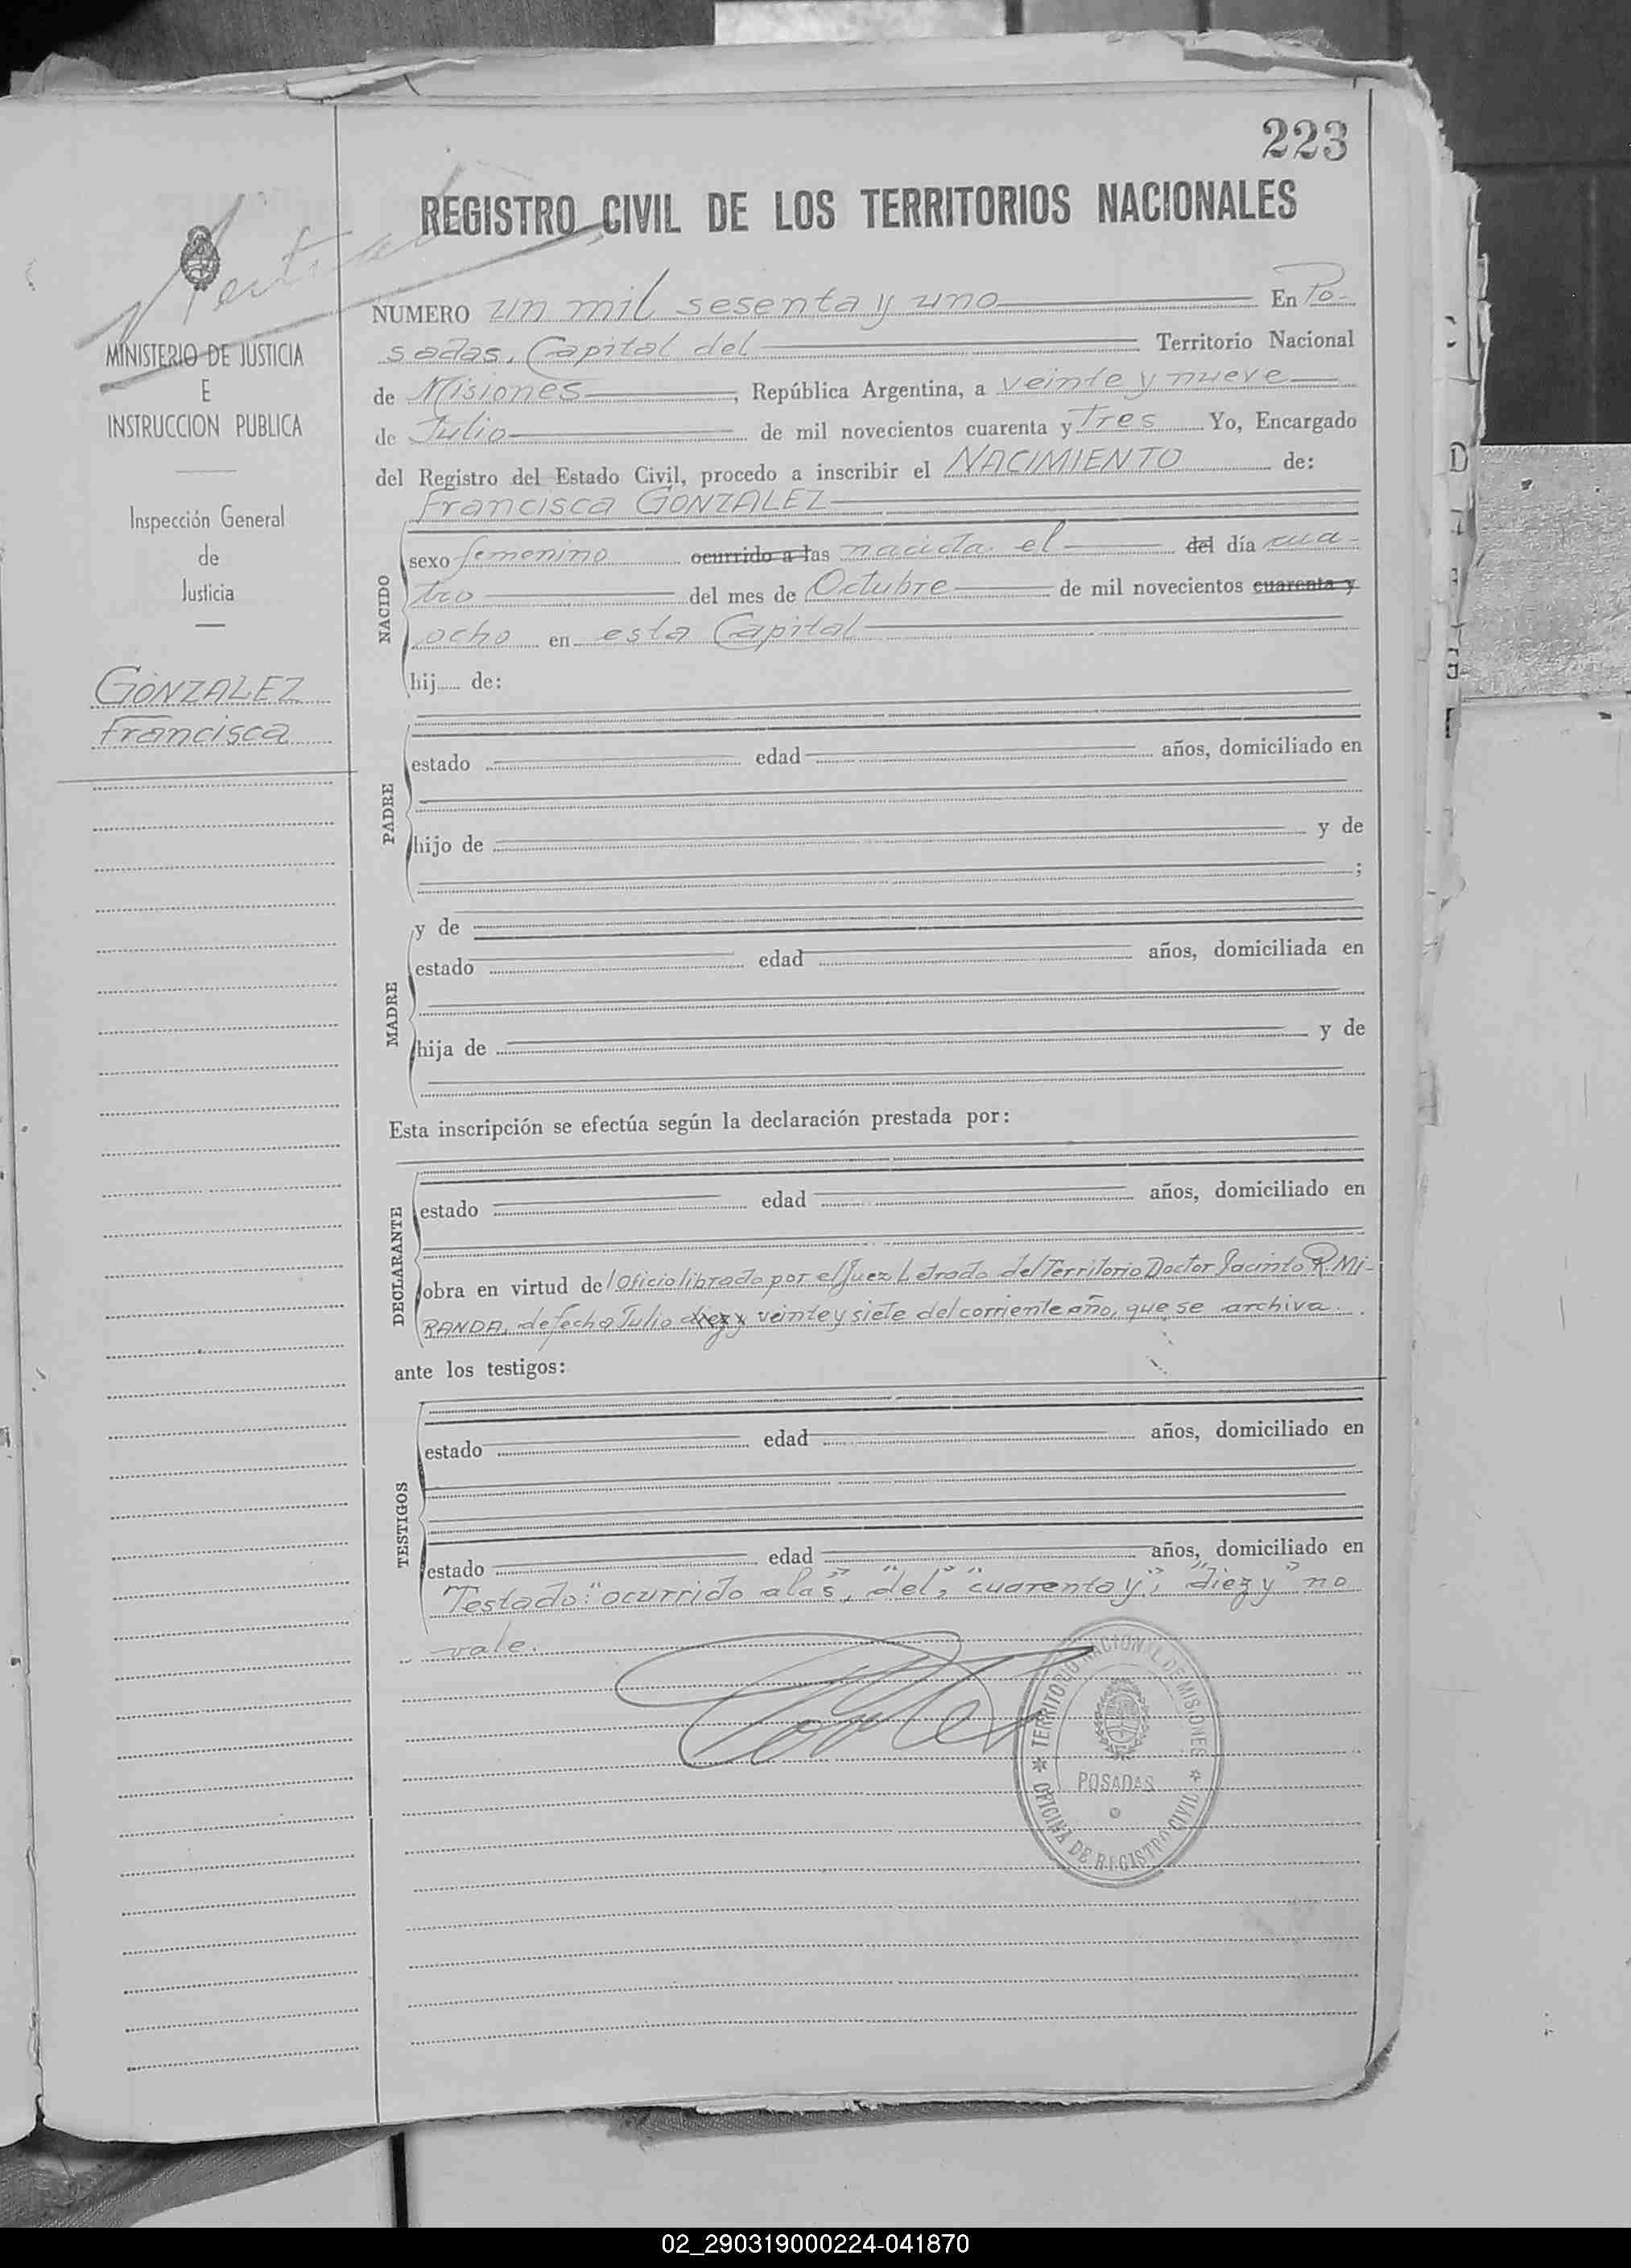 223
REGISTRO CIVIL DE LOS TERRITORIOS NACIONALES
MINISTERIO DE JUSTICIA
E
INSTRUCCION PUBLICA
Inspección General
de
Justicia
GONZALEZ
Francisca
NUMERO un mil sesenta y uno En Po-
sadas, Capital del Territorio Nacional
de Misiones, República Argentina, a veinte y nueve
de Julio de mil novecientos cuarenta y Tres Yo, Encargado
del Registro del Estado Civil, procedo a inscribir el NACIMIENTO de:
Francisca GONZALEZ
NACIDO
sexo femenino ocurrido a las nacida el del día cua-
tro del mes de Octubre de mil novecientos cuarenta y
ocho en esta Capital
hij de:
PADRE
estado edad años, domiciliado en
hijo de y de
;
MADRE
y de
estado edad años, domiciliada en
hija de y de
Esta inscripción se efectúa según la declaración prestada por:
DECLARANTE
estado edad años, domiciliado en
obra en virtud del Oficio librado por el Juez Letrado del Territorio Doctor Jacinto R Mi-
RANDA, de fecha Julio diez y veinte y siete del corriente año, que se archiva.
ante los testigos:
TESTIGOS
estado edad años, domiciliado en
estado edad años, domiciliado en
Testado: "ocurrido a las", "del", "cuarenta y", "diez y" no
vale.
TERRITORIO NACIONAL DE MISIONES
POSADAS
OFICINA DE REGISTRO CIVIL
02_290319000224-041870